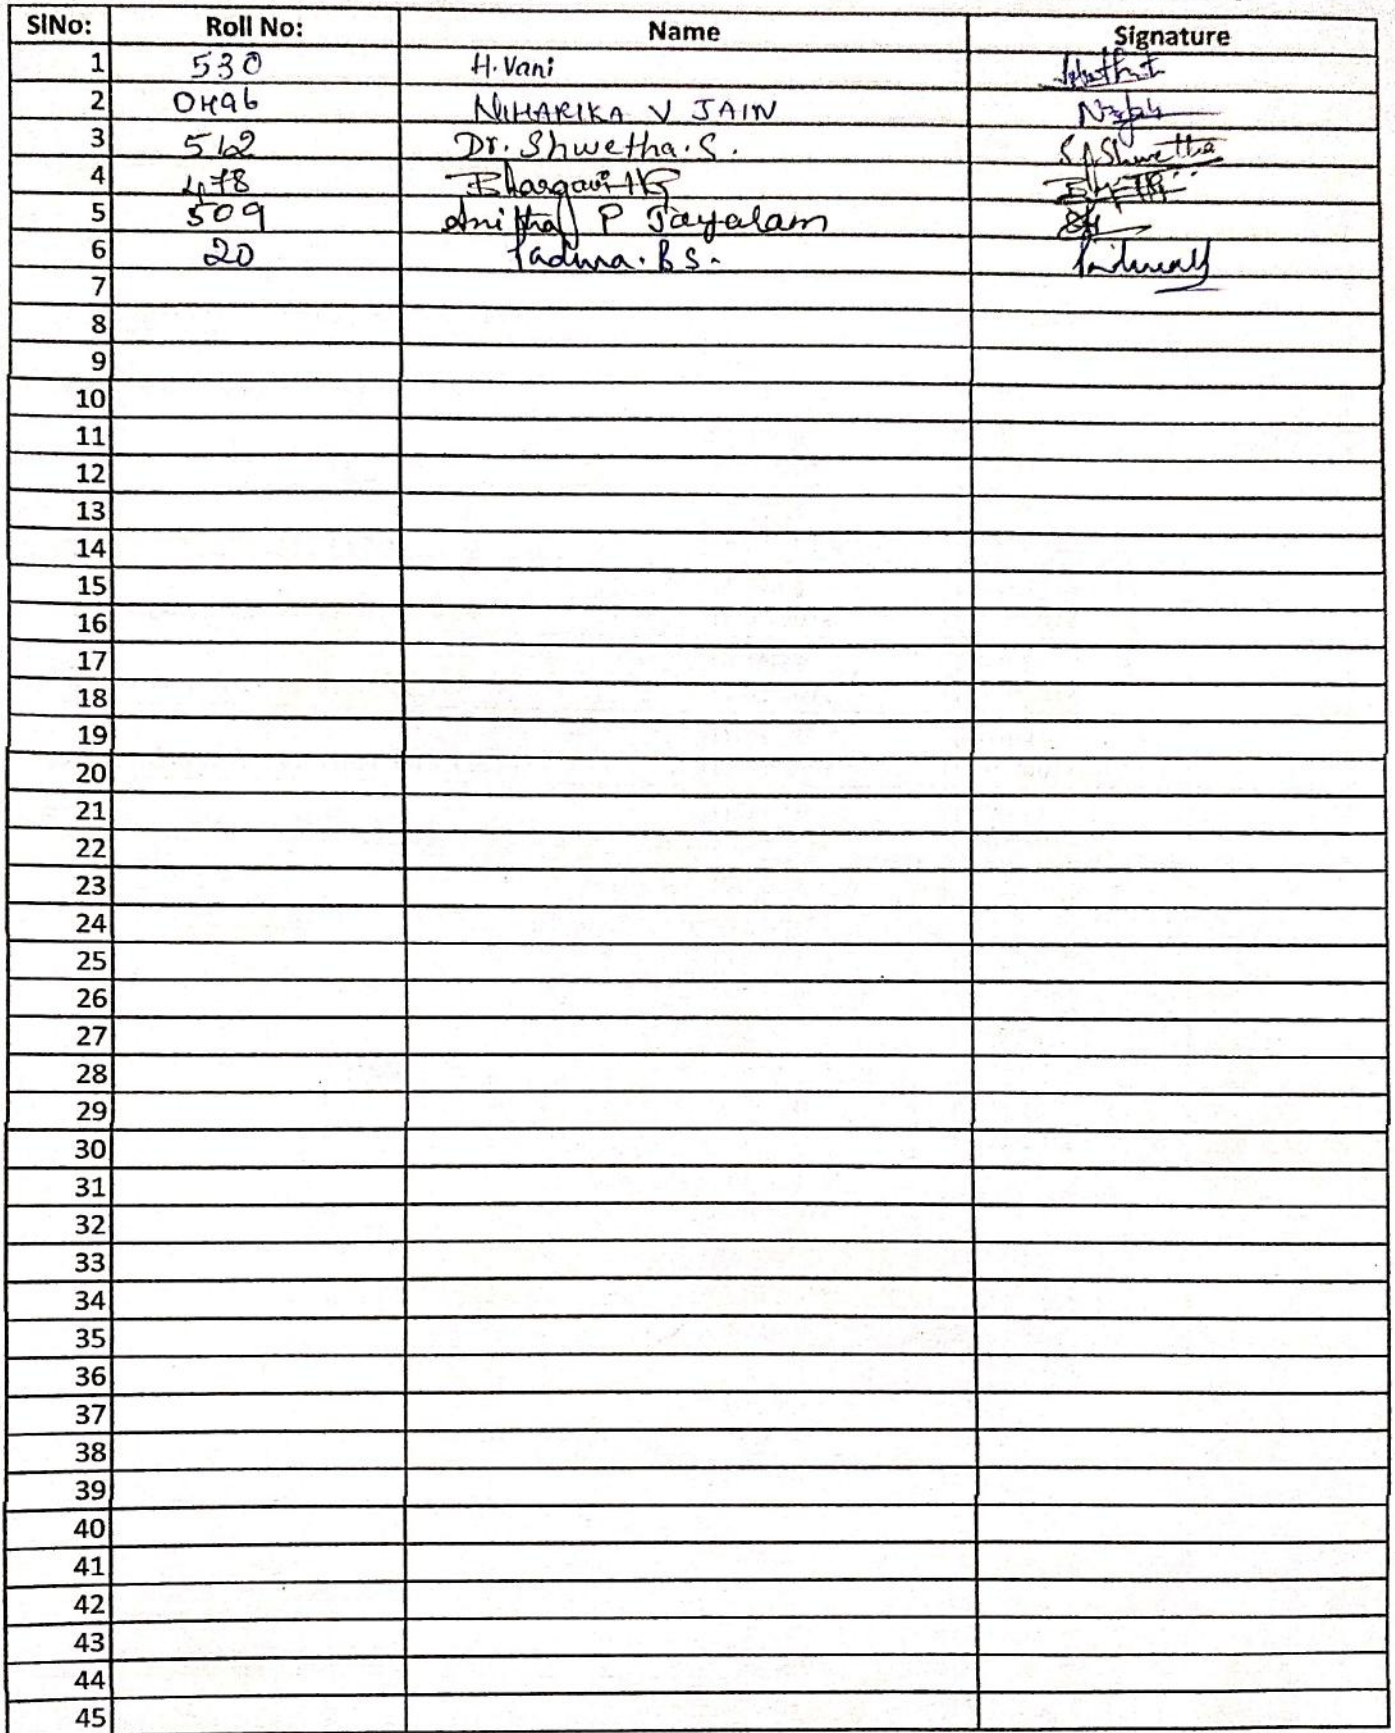 SlNo: Roll No: Name Signature
1 530 H. Vani
2 0496 NIHARIKA V JAIN
3 512 Dr. Shwetha. S. Shwetha
4 478 Bhargavi HG
5 509 Anitha P Jayaram
6 20 Padma. B S.
7
8
9
10
11
12
13
14
15
16
17
18
19
20
21
22
23
24
25
26
27
28
29
30
31
32
33
34
35
36
37
38
39
40
41
42
43
44
45